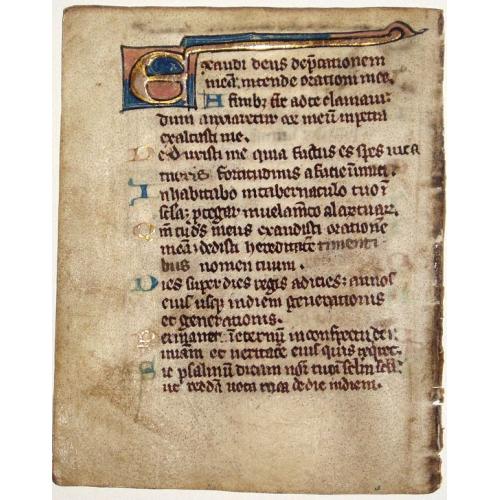 Exaudi deus dep̄cationem
meā. intende orationi mee.
A finib; t̄re ad te clamaui
dum anxiaretur cor meū in petra
exaltasti me.
Deduxisti me quia factus es spes mea
turris fortitudinis a facie inimici
Inhabitabo in tabernaculo tuo ī
sc̄la; ptegar ī uelam̄to alar̄ tuar̄.
Qm̄ tu ds̄ meus exaudisti oratione
meā; dedisti hereditatē timenti
bus nomen tuum.
Dies super dies regis adicies; annos
eius usq; in diem generationis
et generationis.
Permanet ī eternū in conspectu dei
miam̄ et ueritatē eius quis reqret.
Sic psalmū dicam noī tuo ī sclm̄ scl̄i
ut reddā uota mea de die in diem.